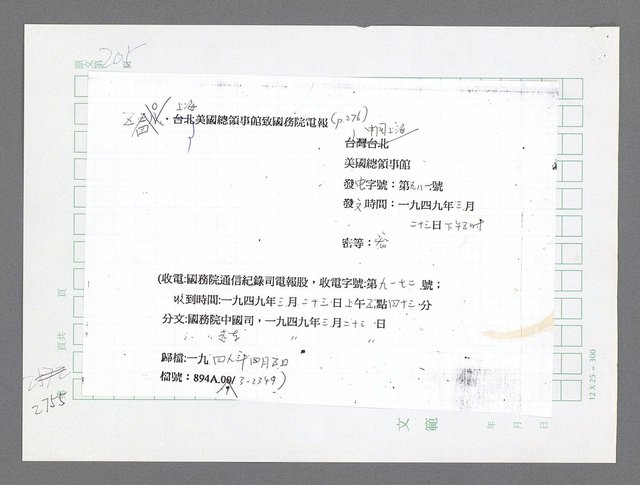 原文第205頁
上海
台北美國總領事館致國務院電報(p.276)
中國上海
台灣台北
美國總領事館
發電字號:第九八一號
發文時間:一九四九年三月
二十三日下午五時
密等:密
(收電:國務院通信紀錄司電報股,收電字號:第九一七二號;
收到時間:一九四九年三月二十三日上午五點四十三分
分文:國務院中國司,一九四九年三月二十三日
歸檔:一九四八年四月五日
檔號:894A.00/3-2349)
頁
頁共
2572
2755
文範
年 月 日
12 X 25 = 300